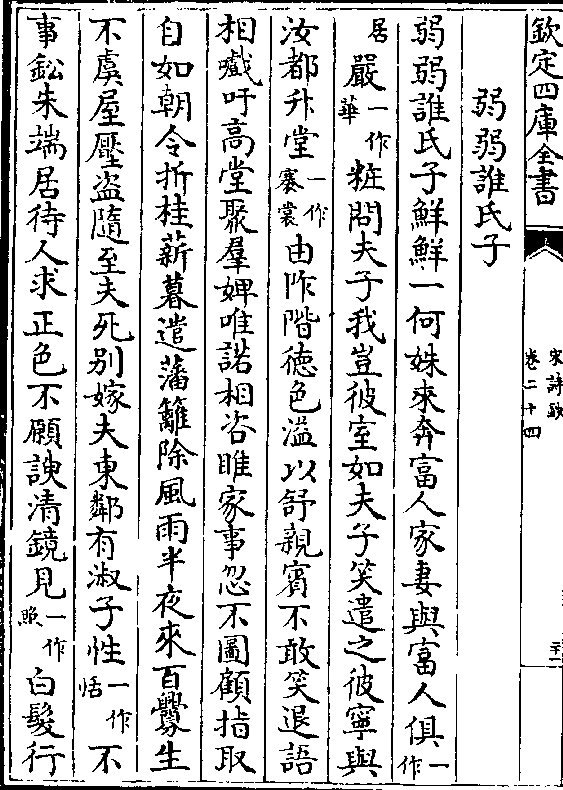 欽定四庫全書
宋詩鈔
卷二十四
弱弱誰氏子
弱弱誰氏子鮮鮮一何姝來奔富人家妻與富人俱一作
居嚴一作華粧問夫子我豈彼室如夫子笑遣之彼寧與
汝都升堂一作褰裳由阼階德色溢以舒親賓不敢笑退語
相戲吁高堂聚羣婢唯諾相咨睢家事忽不圖顧指取
自如朝令折桂薪暮遣藩籬除風雨半夜來百釁生
不虞屋壓盜隨至夫死別嫁夫東鄰有淑子性一作恬不
事鉛朱端居待人求正色不願諛清鏡見一作照白髮行